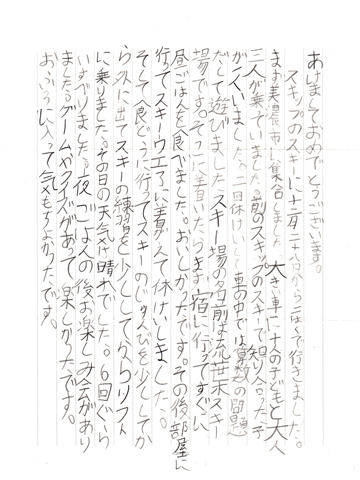 あけましておめでとうございます。
スキップのスキーに十二月二十八日から二はくで行きました。
まず美濃市に集合しました。大きい車に十人の子どもと大人
三人が乗っていました。前のスキップのスキーで知り合った子
が二人いました。二回休けいし、車の中では算数の問題
だして遊びました。スキー場の名前は流世木スキー
場です。そこに着いたらまず宿に行ってすぐに
昼ごはんを食べました。おいしかったです。その後部屋に
行ってスキーウエアに着がえて休けいしました。
そして食どうに行ってスキーのじゅんびを少ししてか
ら外に出てスキーの練習を少ししてからリフト
に乗りました。その日の天気は晴れでした。6回ぐら
いすべりました。夜ごはんの後お楽しみ会があり
ました。ゲームやクイズがあって楽しかったです。
おふろに入って気もちよかったです。